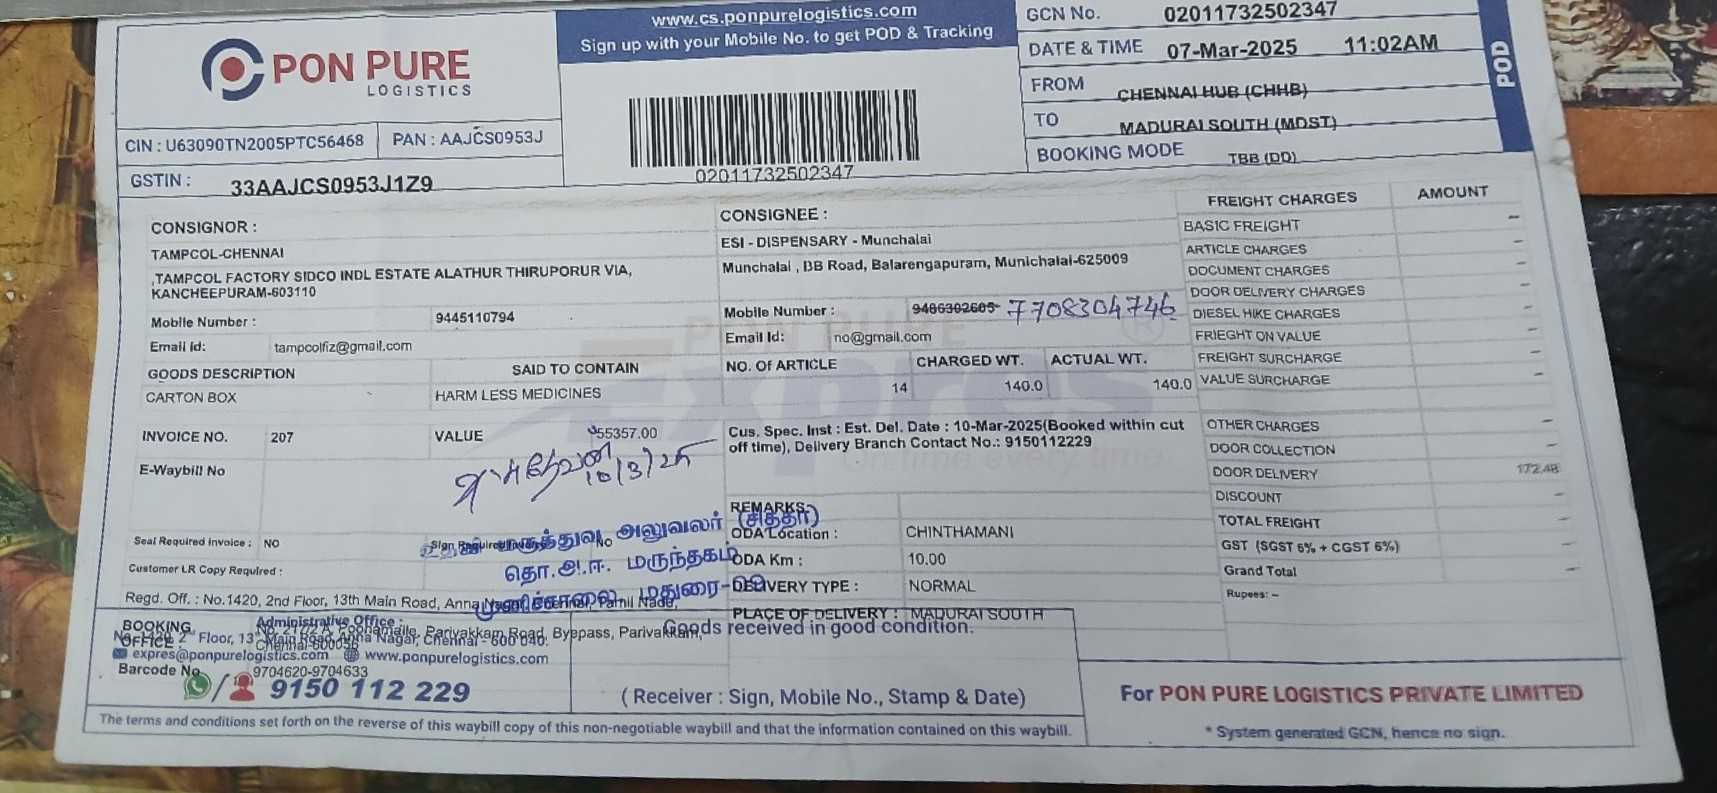 PON PURE
LOGISTICS
CIN : U63090TN2005PTC56468 PAN : AAJCS0953J
GSTIN : 33AAJCS0953J1Z9
www.cs.ponpurelogistics.com
Sign up with your Mobile No. to get POD & Tracking
02011732502347
GCN No. 02011732502347
DATE & TIME 07-Mar-2025 11:02AM
FROM CHENNAI HUB (CHHB)
TO MADURAI SOUTH (MDST)
BOOKING MODE TBB (DD)
POD
CONSIGNOR :
TAMPCOL-CHENNAI
,TAMPCOL FACTORY SIDCO INDL ESTATE ALATHUR THIRUPORUR VIA,
KANCHEEPURAM-603110
Mobile Number : 9445110794
Email Id: tampcolfiz@gmail.com
CONSIGNEE :
ESI - DISPENSARY - Munchalai
Munchalai , BB Road, Balarengapuram, Munichalai-625009
Mobile Number : 9486302605 7708304746
Email Id: no@gmail.com
GOODS DESCRIPTION SAID TO CONTAIN
CARTON BOX HARM LESS MEDICINES
NO. Of ARTICLE CHARGED WT. ACTUAL WT.
14 140.0 140.0
INVOICE NO. 207 VALUE 55357.00
E-Waybill No
10/3/25
Cus. Spec. Inst : Est. Del. Date : 10-Mar-2025(Booked within cut
off time), Delivery Branch Contact No.: 9150112229
Expres
On time every time
REMARKS:
ODA Location : CHINTHAMANI
ODA Km : 10.00
DELIVERY TYPE : NORMAL
PLACE OF DELIVERY : MADURAI SOUTH
Seal Required invoice : NO Sign Required No
Customer LR Copy Required :
மருத்துவ அலுவலர் (சித்தா)
தொ.அ.ஈ. மருந்தகம்
முனிச்சாலை, மதுரை-09
Regd. Off. : No.1420, 2nd Floor, 13th Main Road, Anna Nagar, Chennai, Tamil Nadu,
BOOKING OFFICE :
Administrative Office :
Poonamalle, Parivakkam Road, Byepass, Parivakkam,
Floor, 13 Main Road, Anna Nagar, Chennai - 600 040.
Chennai-600056
expres@ponpurelogistics.com www.ponpurelogistics.com
Barcode No 9704620-9704633
9150 112 229
Goods received in good condition.
( Receiver : Sign, Mobile No., Stamp & Date)
The terms and conditions set forth on the reverse of this waybill copy of this non-negotiable waybill and that the information contained on this waybill.
FREIGHT CHARGES AMOUNT
BASIC FREIGHT –
ARTICLE CHARGES –
DOCUMENT CHARGES –
DOOR DELIVERY CHARGES –
DIESEL HIKE CHARGES –
FRIEGHT ON VALUE –
FREIGHT SURCHARGE –
VALUE SURCHARGE –
OTHER CHARGES –
DOOR COLLECTION –
DOOR DELIVERY 172.48
DISCOUNT –
TOTAL FREIGHT –
GST (SGST 6% + CGST 6%) –
Grand Total –
Rupees: –
For PON PURE LOGISTICS PRIVATE LIMITED
* System generated GCN, hence no sign.